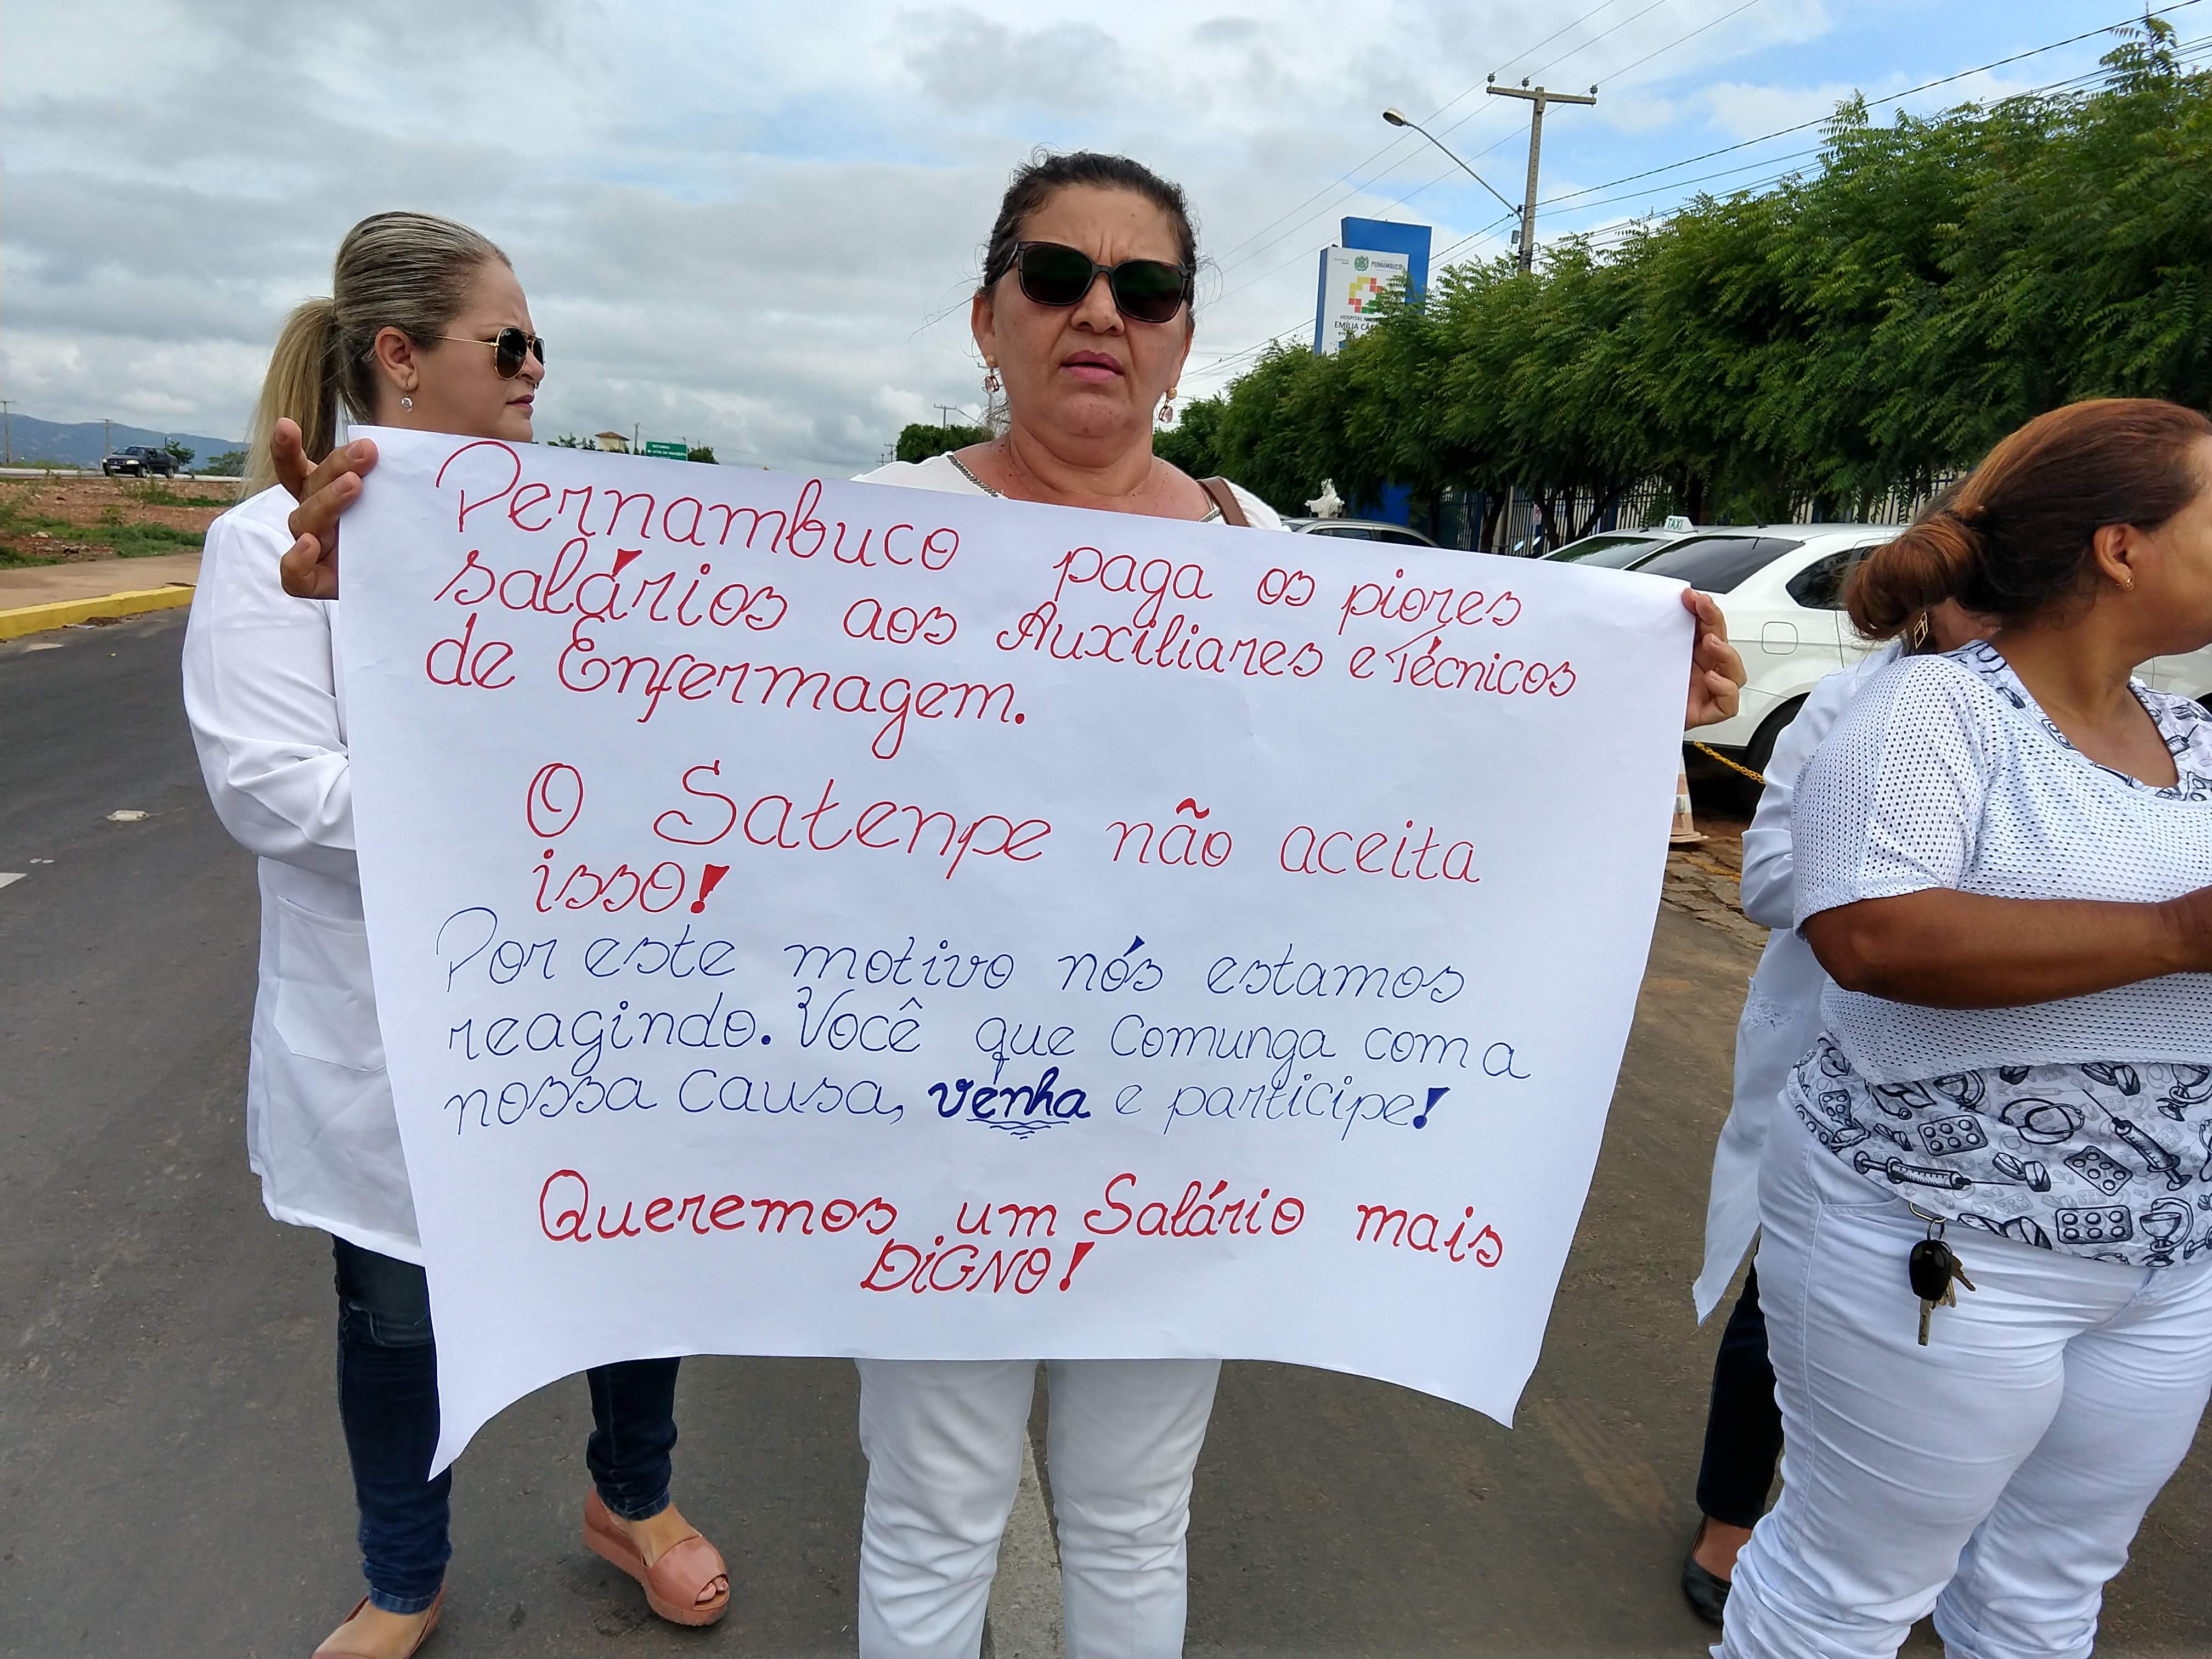 Pernambuco paga os piores
salários aos Auxiliares e Técnicos
de Enfermagem.
O Satenpe não aceita
isso!
Por este motivo nós estamos
reagindo. Você que comunga com a
nossa causa, venha e participe!
Queremos um Salário mais
DiGNO!
PERNAMBUCO
HOSPITAL
EMÍLIA
RETORNO
TAXI